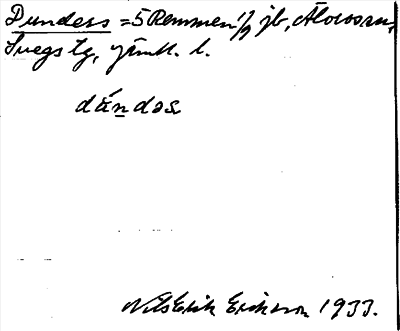 Dunders = 5 Remmen 1/1 jb, Älvros sn,
Svegs tg, Jämtl. l.
dúndəs
Nils Erik Erikson 1933.